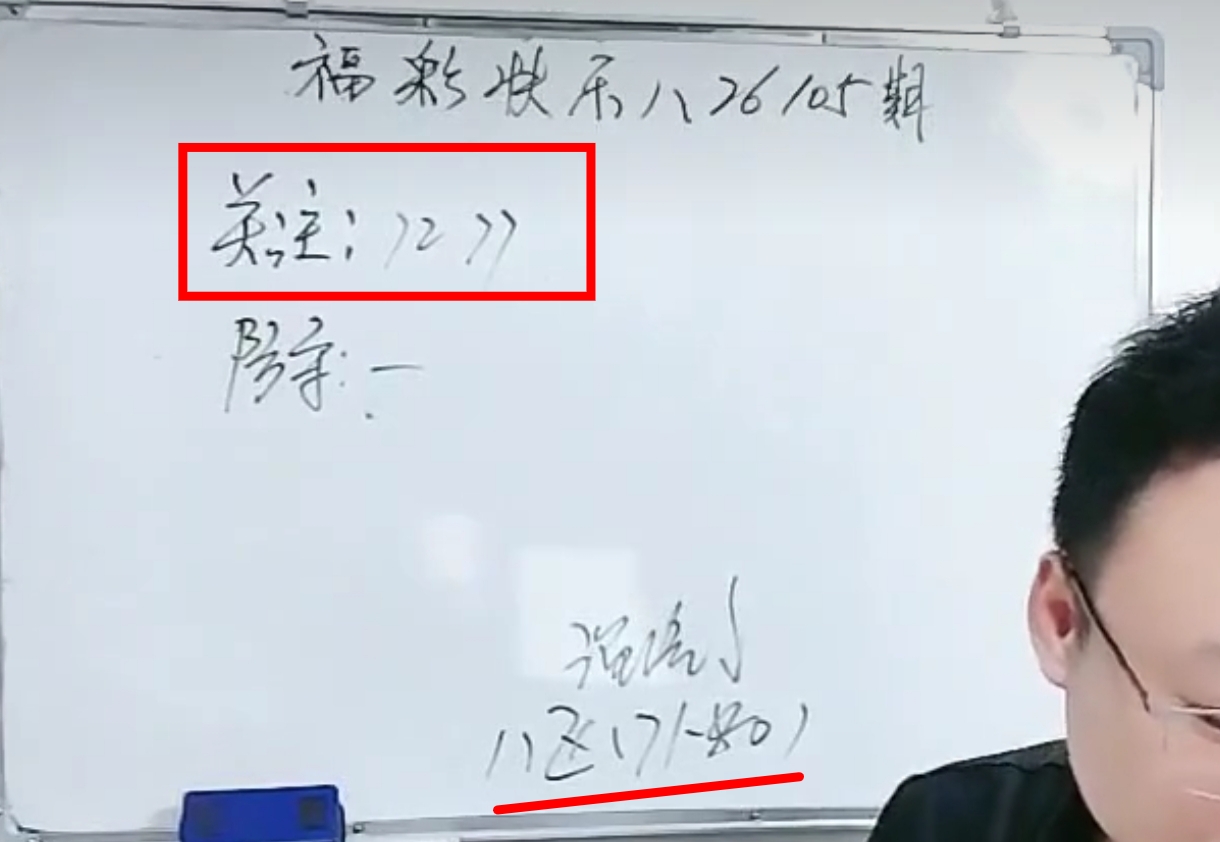 福彩快乐八26105期
关注：72 77
防守：一
八区（71-80）